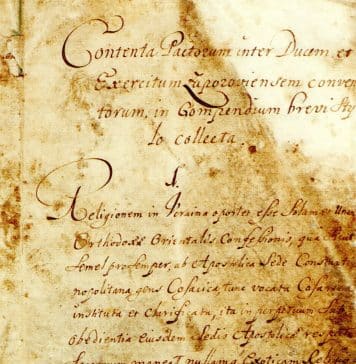 Contenta Pactorum inter Ducem et
Exercitum Zaporoviensem conven
torum, in Compendium brevi Sty
lo collecta.
1.
Religionem in Ucraina oportet esse Solam et Unam
Orthodoxae Orientalis Confessionis, qua
Semel pro semper, ab Apostolica Sede Constanti
nopolitana gens Cosacica, tunc vocata Cosarorum
instituta et clarificata, ita in perpetuum sub
obedientia eiusdem Sedis Apostolicae
maneat nullamque Exoticam